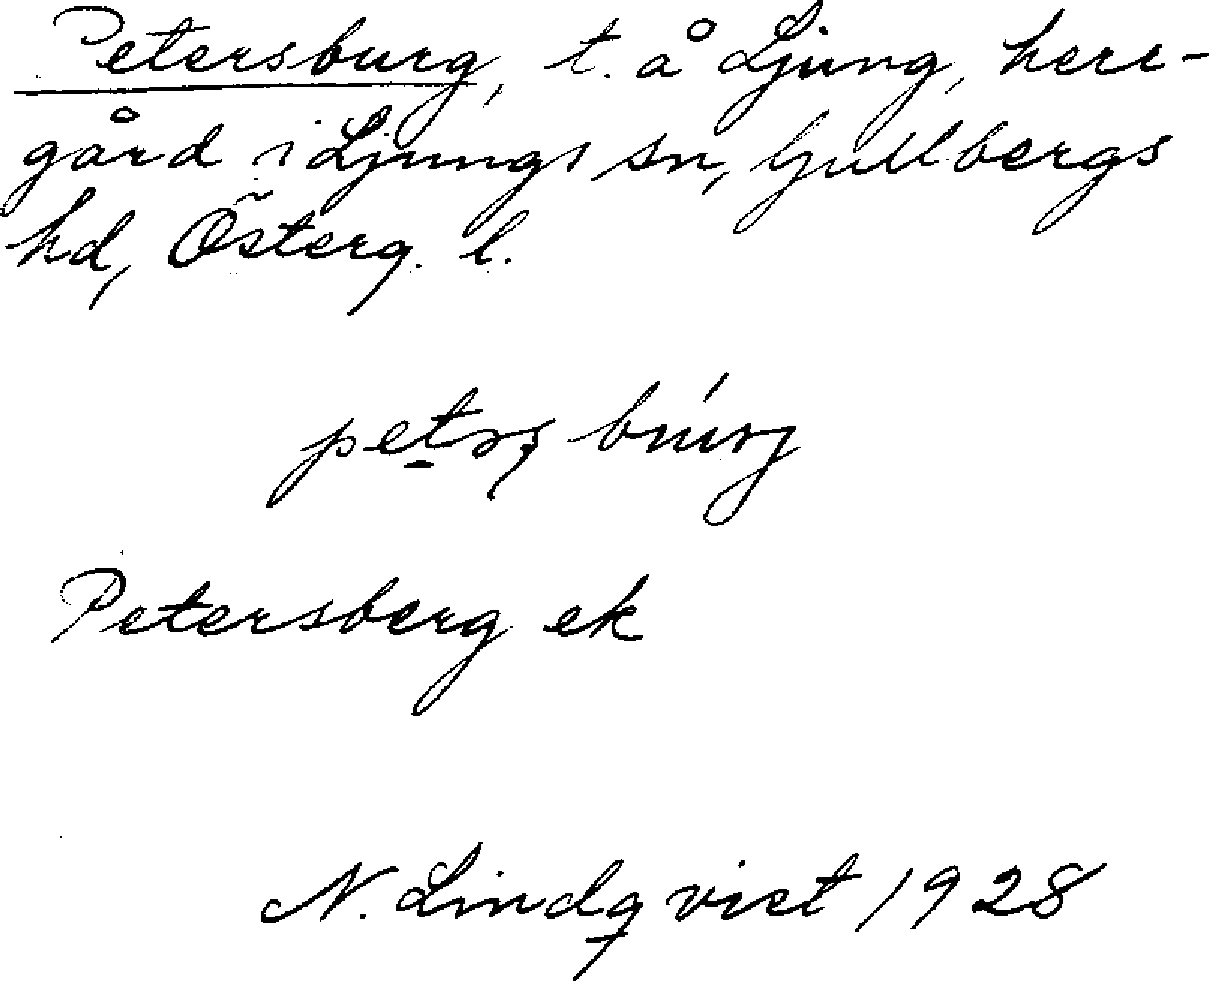 Petersburg, t. å Ljung, herr-
gård i Ljungs sn, Gullbergs
hd, Österg. l.
Petersberg ek
N. Lindqvist 1928